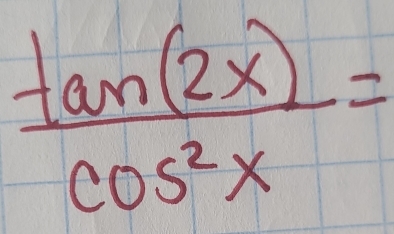 tan(2x) =
cos²x